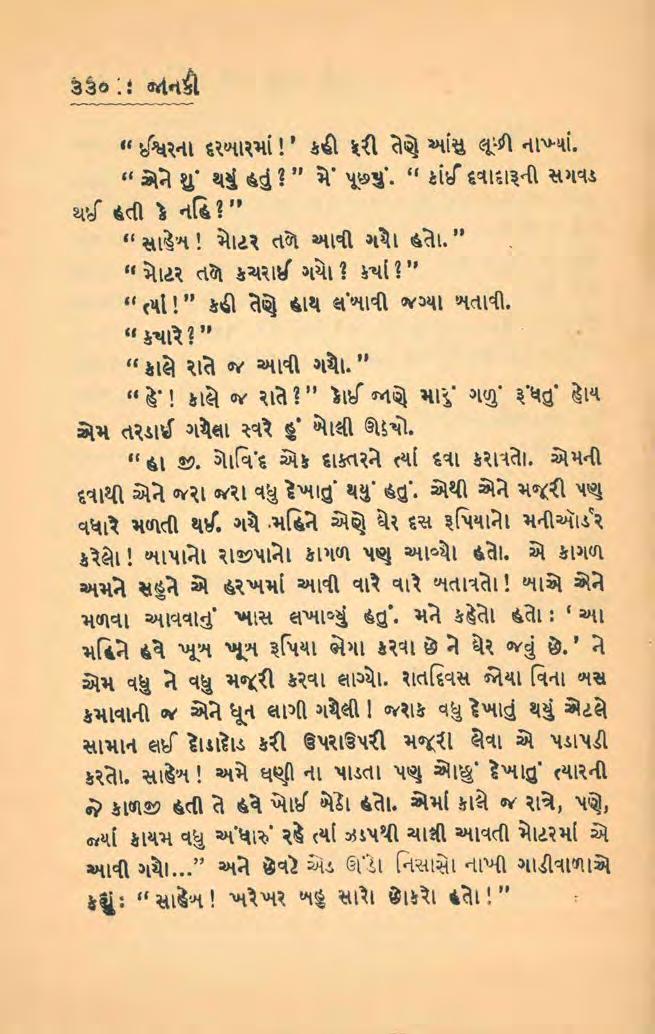 ૩૩૦ : : જાનકી
“ ઈશ્વરના દરબારમાં ! ’ કહી ફરી તેણે આંસુ લૂછી નાખ્યાં.
“ એને શું થયું હતું ? ” મેં પૂછ્યું. “ કાંઈ દવાદારૂની સગવડ
થઈ હતી કે નહિ ? ”
“ સાહેબ ! મોટર તળે આવી ગયો હતો. ”
“ મોટર તળે કચરાઈ ગયો ? ક્યાં ? ”
“ ત્યાં ! ” કહી તેણે હાથ લંબાવી જગ્યા બતાવી.
“ ક્યારે ? ”
“ કાલે રાતે જ આવી ગયો. ”
“ હેં ! કાલે જ રાતે ? ” કોઈ જાણે મારું ગળું રૂંધતું હોય
એમ તરડાઈ ગયેલા સ્વરે હું બોલી ઊઠ્યો.
“ હા જી. ગોવિંદ એક દાક્તરને ત્યાં દવા કરાવતો. એમની
દવાથી એને જરા જરા વધુ દેખાતું થયું હતું. એથી એને મજૂરી પણ
વધારે મળતી થઈ. ગયે મહિને એણે ઘેર દસ રૂપિયાનો મનીઑર્ડર
કરેલો ! બાપાનો રાજીપાનો કાગળ પણ આવ્યો હતો. એ કાગળ
અમને સહુને એ હરખમાં આવી વારે વારે બતાવતો ! બાએ એને
મળવા આવવાનું ખાસ લખાવ્યું હતું. મને કહેતો હતો : ‘ આ
મહિને હવે ખૂબ ખૂબ રૂપિયા ભેગા કરવા છે ને ઘેર જવું છે. ’ ને
એમ વધુ ને વધુ મજૂરી કરવા લાગ્યો. રાતદિવસ જોયા વિના બસ
કમાવાની જ એને ધૂન લાગી ગયેલી ! જરાક વધુ દેખાતું થયું એટલે
સામાન લઈ દોડાદોડ કરી ઉપરાઉપરી મજૂરી લેવા એ પડાપડી
કરતો. સાહેબ ! અમે ઘણી ના પાડતા પણ ઓછું દેખાતું ત્યારની
જે કાળજી હતી તે હવે ખોઈ બેઠો હતો. એમાં કાલે જ રાત્રે, પણે,
જ્યાં કાયમ વધુ અંધારું રહે ત્યાં ઝડપથી ચાલી આવતી મોટરમાં એ
આવી ગયો... ” અને છેવટે એડ ઊંડો નિસાસો નાખી ગાડીવાળાએ
કહ્યું : “ સાહેબ ! ખરેખર બહુ સારો છોકરો હતો ! ”